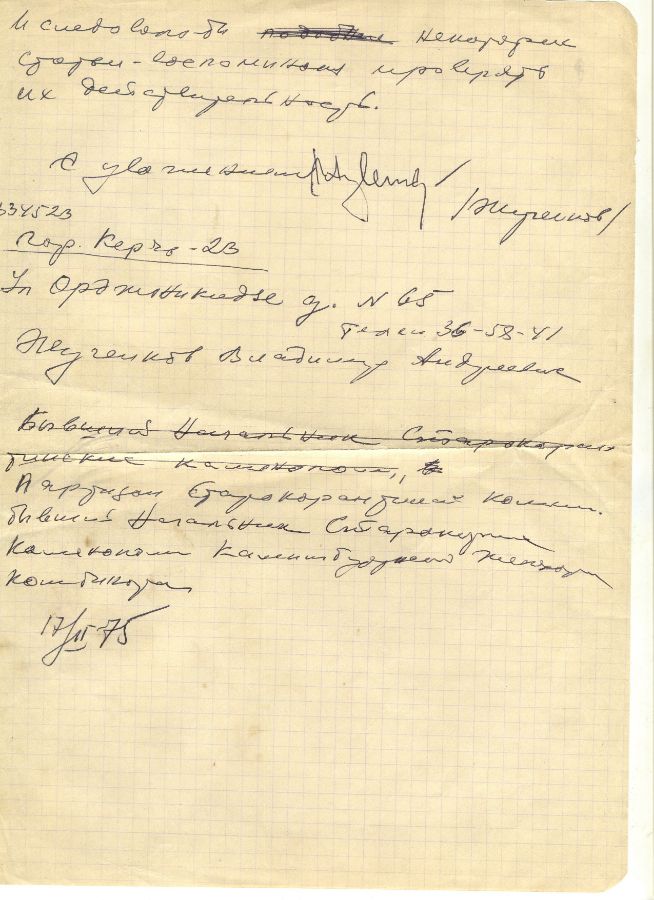 И следовало бы подобные некоторые
статьи-воспоминания проверять
их действительность.
С уважением /Жученков/
334523
гор. Керчь-23
Ул Орджоникидзе д. N 65
телеф 36-58-41
Жученков Владимир Андреевич
Бывший Начальник Старокаран
тинских каменоломн,
Партизан Старокарантинской
бывший Начальник
Каменоломн
комбината
17/II-75